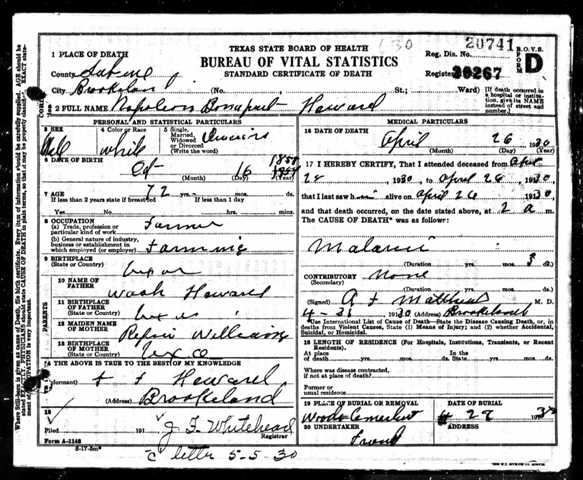 20741
TEXAS STATE BOARD OF HEALTH
BUREAU OF VITAL STATISTICS
STANDARD CERTIFICATE OF DEATH
Reg. Dis. No.
B.O.V.S.
FORM D
Registered 20267
1 PLACE OF DEATH
County Sabine
City Brookeland (No. St.; Ward)
[If death occurred in a hospital or institution, give its NAME instead of street and number.]
2 FULL NAME Napoleon Bonapart Howard
PERSONAL AND STATISTICAL PARTICULARS
3 SEX
4 Color or Race white
5 Single, Married, Widowed or Divorced (Write the word)
6 DATE OF BIRTH
Oct 16 1857
(Month) (Day) (Year)
7 AGE 72 yrs.
If less than 2 years state if breastfed
If less than 1 day
Yes No hrs. min.
8 OCCUPATION
(a) Trade, profession or particular kind of work Farmer
(b) General nature of industry, business or establishment in which employed (or employer) Farming
9 BIRTHPLACE
(State or Country)
10 NAME OF FATHER Wash Howard
11 BIRTHPLACE OF FATHER
(State or Country)
12 MAIDEN NAME OF MOTHER Williams
13 BIRTHPLACE OF MOTHER
(State or Country)
PARENTS
14 THE ABOVE IS TRUE TO THE BEST OF MY KNOWLEDGE
(Informant) Howard
(Address) Brookeland
15
Filed 191 J. F. Whitehead
Registrar
Form A-1146
"c" letter 5-5-30
MEDICAL PARTICULARS
16 DATE OF DEATH
April 26 1930
(Month) (Day) (Year)
17 I HEREBY CERTIFY, That I attended deceased from Apr
24, 1930, to April 26, 1930
that I last saw him alive on April 26 1930
and that death occurred, on the date stated above, at 2 a m.
The CAUSE OF DEATH* was as follows:
(Duration) yrs. mos. ds.
CONTRIBUTORY None
(Secondary)
(Duration) yrs. mos. ds.
(Signed) M. D.
4-31 1930 (Address) Brookeland
*Use International List of Causes of Death—State the Disease Causing Death, or, in deaths from Violent Causes, State (1) Means of Injury; and (2) whether Accidental, Suicidal, or Homicidal.
18 LENGTH OF RESIDENCE (For Hospitals, Institutions, Transients, or Recent Residents).
At place of death yrs. mos. ds. In the State yrs. mos. ds.
Where was disease contracted, if not at place of death?
Former or usual residence
19 PLACE OF BURIAL OR REMOVAL
4 27 1930
20 UNDERTAKER
Friend
ADDRESS